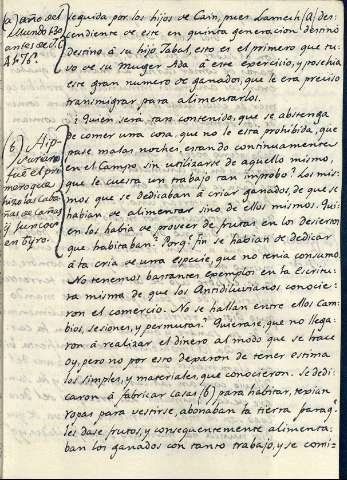 (a) año del
Mundo 130
antes de J.C.
4176.
(6) Hip
surano
fué el pri
mero que
hizo las Caba
ñas de cañas
y juncos
en Tyro.
seguida, por los hijos de Cain, pues Lamech (a) des-
cendiente de este, en quinta generacion destinó
destinó á su hijo Jabel, esto es el primero que tu-
vo de su Muger Ada á este exercicio, y posehia
este gran numero de ganados, que le era preciso
transmigrar, para alimentarlos.
¿Quien será tan contenido, que se abstenga
de comer una cosa, que no le está prohibida, que
pase malas noches, estando continuamente
en el Campo, sin utilizarse de aquello mismo,
que le cuesta un trabajo tan improbo? Los mis-
mos que se dedicaban á criar ganados, de que se
habian de alimentar sino de ellos mismos. Qui-
en los habia de proveer de frutas en los desiertos
que habitaban? Porq.e fin se habian de dedicar
á la cria de una especie, que no tenia consumo.
No tenemos bastantes exemplos en la Escritu-
ra misma de que los Antidiluvianos conocie-
ron el comercio. No se hallan entre ellos Cam-
bios, sesiones, y permutan? Quierase, que no llega-
ron á realizar el dinero al modo que se hace
oy, pero no por esto dexaron de tener estima
los simples, y materiales, que conocieron. Se dedi-
caron á fabricar casas (6) para habitar, texian
ropas para vestirse, abonaban la tierra paraq.e
les dase frutos, y consequentemente alimenta-
ban los ganados con tanto trabajo, y se comi-